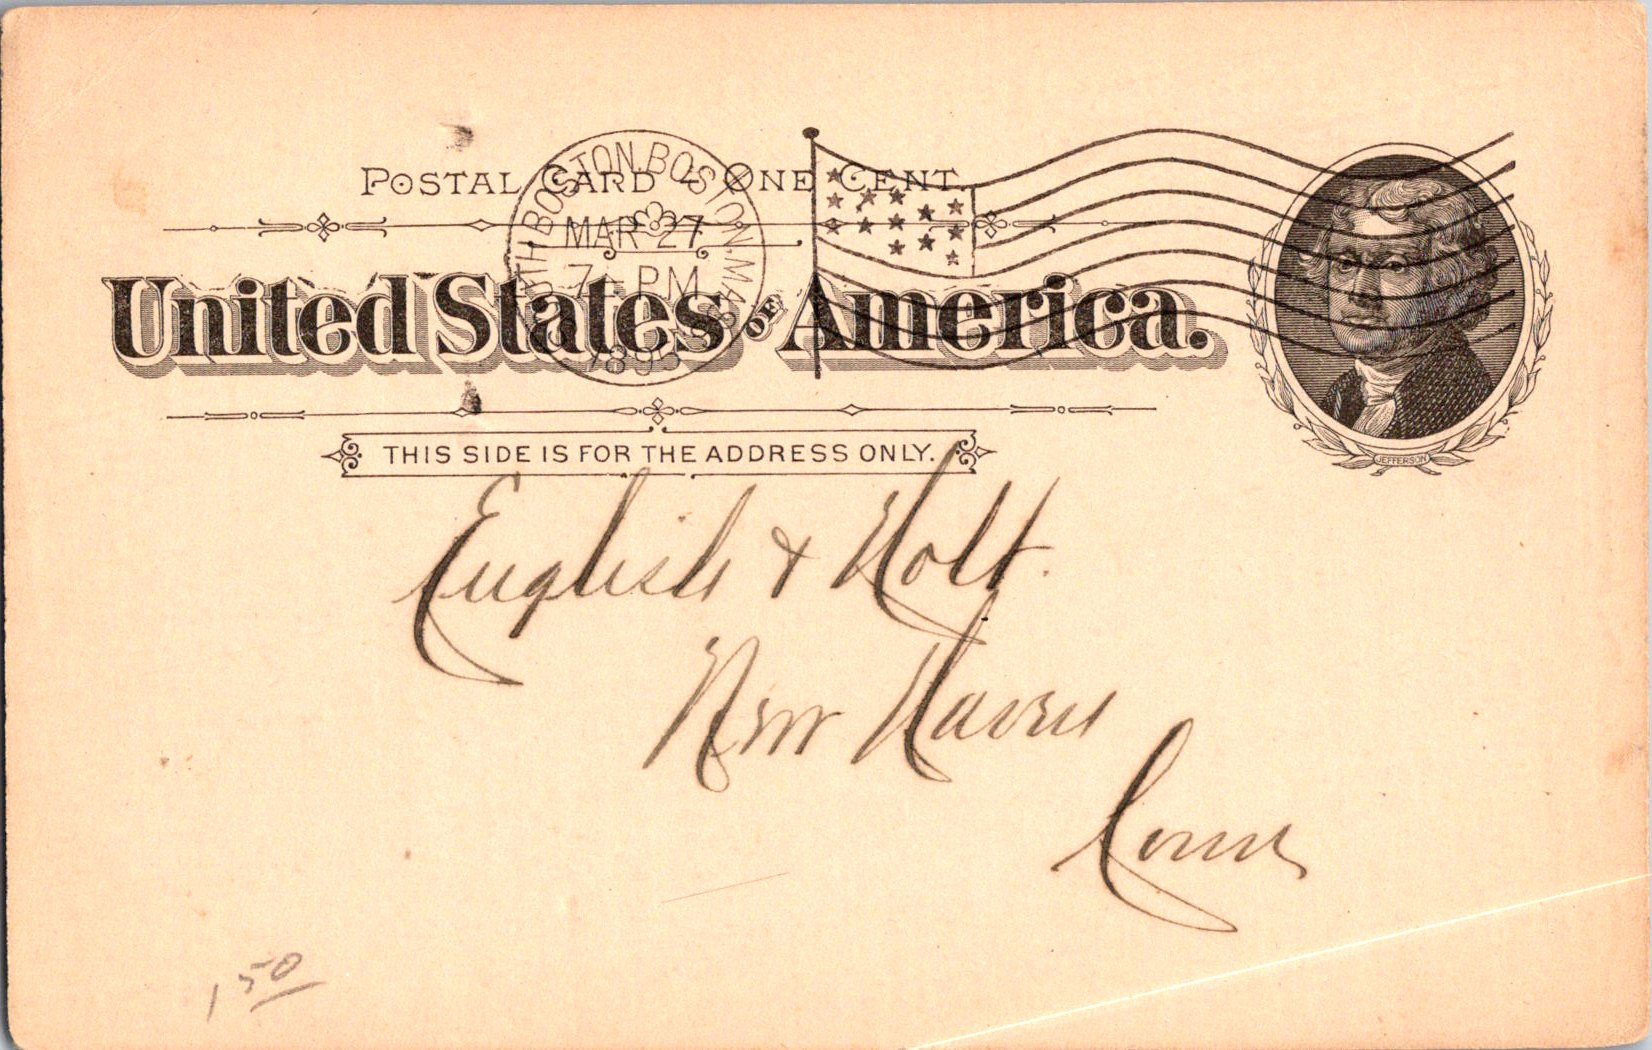 POSTAL CARD - ONE CENT.
SOUTH BOSTON, BOSTON, MASS.
MAR 27
7 - PM
United States OF America.
JEFFERSON
THIS SIDE IS FOR THE ADDRESS ONLY.
English & Holt.
New Haven
Conn
1 50